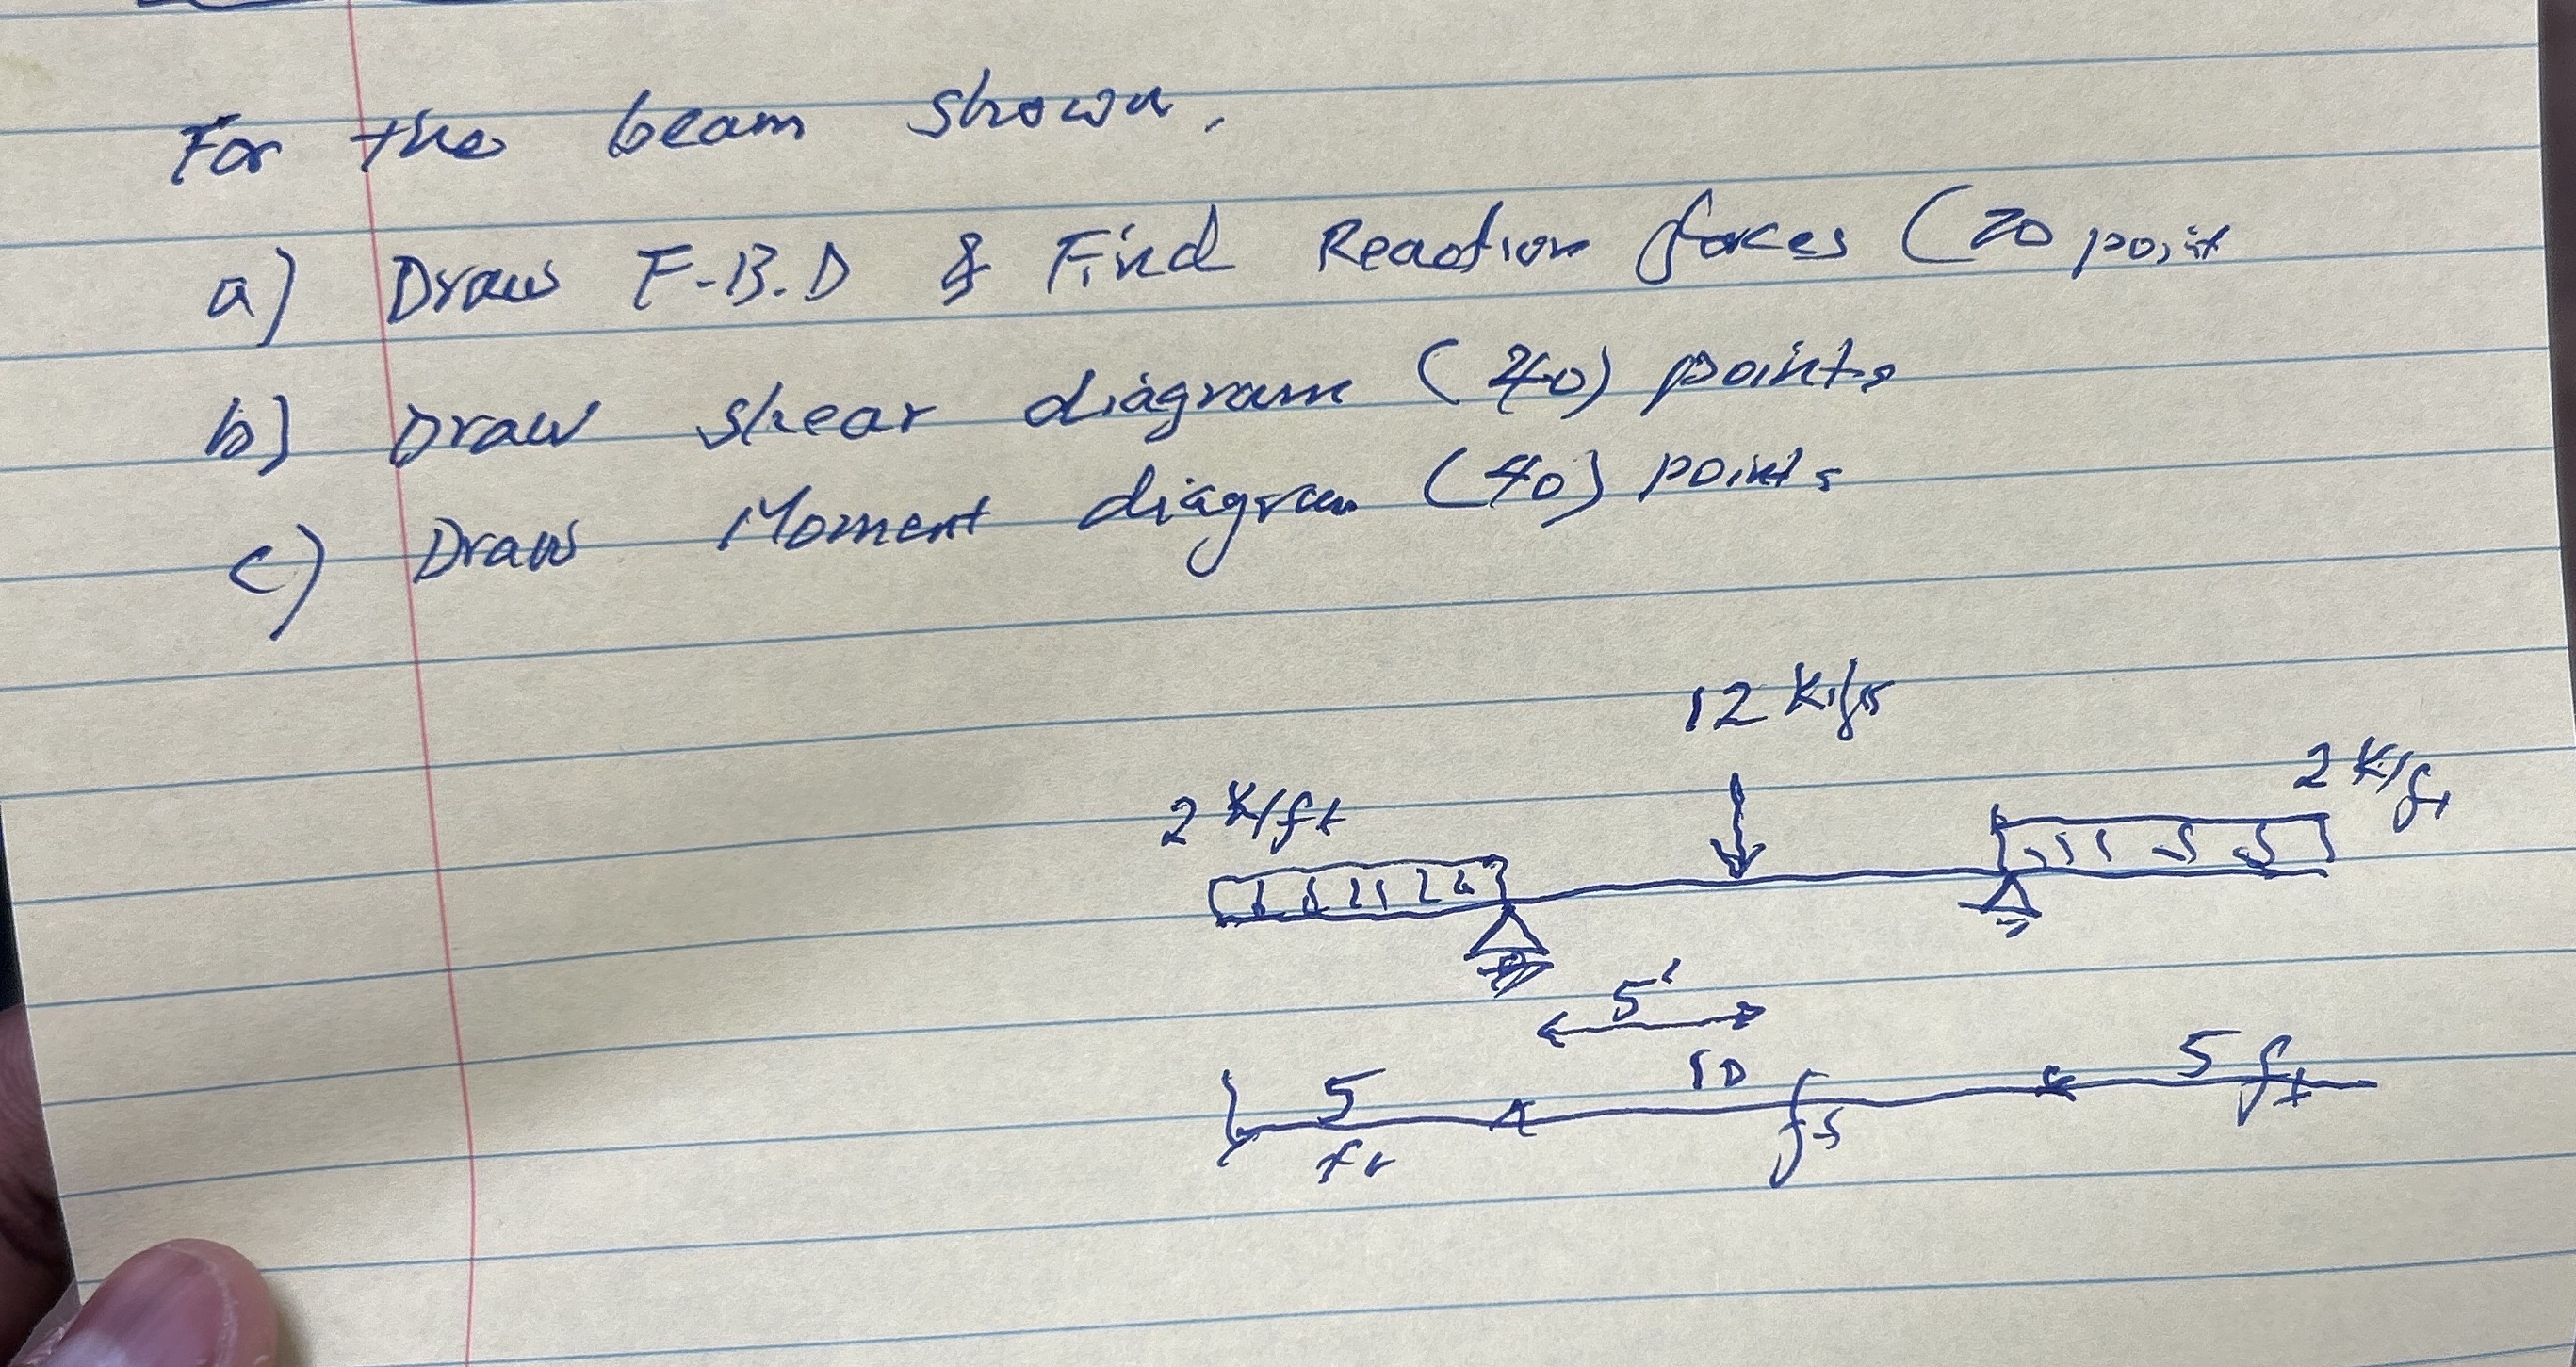 For the beam shown,
a) Draw F-B.D & Find Reaction forces (20 point
b) Draw shear diagram (40) points
c) Draw Moment diagram (40) points
12 Kips
2 K/ft
2 K/ft
5'
5 ft
10
5 ft